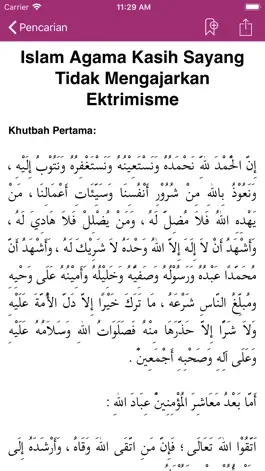 Carrier 11:29 AM
Pencarian
Islam Agama Kasih Sayang
Tidak Mengajarkan
Ektrimisme
Khutbah Pertama:
إِنَّ الْحَمْدَ لِلَّهِ نَحْمَدُهُ وَنَسْتَعِيْنُهُ وَنَسْتَغْفِرُهُ وَنَتُوْبُ إِلَيْهِ ،
وَنَعُوْذُ بِاللهِ مِنْ شُرُوْرِ أَنْفُسِنَا وَسَيِّئَاتِ أَعْمَالِنَا ، مَنْ
يَهْدِهِ اللهُ فَلَا مُضِلَّ لَهُ ، وَمَنْ يُضْلِلْ فَلَا هَادِيَ لَهُ ،
وَأَشْهَدُ أَنْ لَا إِلَهَ إِلَّا اللهُ وَحْدَهُ لَا شَرِيْكَ لَهُ ، وَأَشْهَدُ أَنَّ
مُحَمَّدًا عَبْدُهُ وَرَسُوْلُهُ وَصَفِيُّهُ وَخَلِيْلُهُ وَأَمِيْنُهُ عَلَى وَحْيِهِ
وَمُبَلِّغُ النَاسِ شَرْعَهُ ، مَا تَرَكَ خَيْرًا إِلَّا دَلَّ الْأُمَّةَ عَلَيْهِ
وَلَا شَرًا إِلَّا حَذَّرَهَا مِنْهُ فَصَلَوَاتُ اللهِ وَسَلَامُهُ عَلَيْهِ
وَعَلَى آلِهِ وَصَحْبِهِ أَجْمَعِيْنَ .
أَمَّا بَعْدُ مَعَاشِرَ الْمُؤْمِنِيْنَ عِبَادَ اللهِ :
اِتَّقُوْا اللهَ تَعَالَى ؛ فَإِنَّ مَنِ اتَّقَى اللهَ وَقَاهُ ، وَأَرْشَدَهُ إِلَى